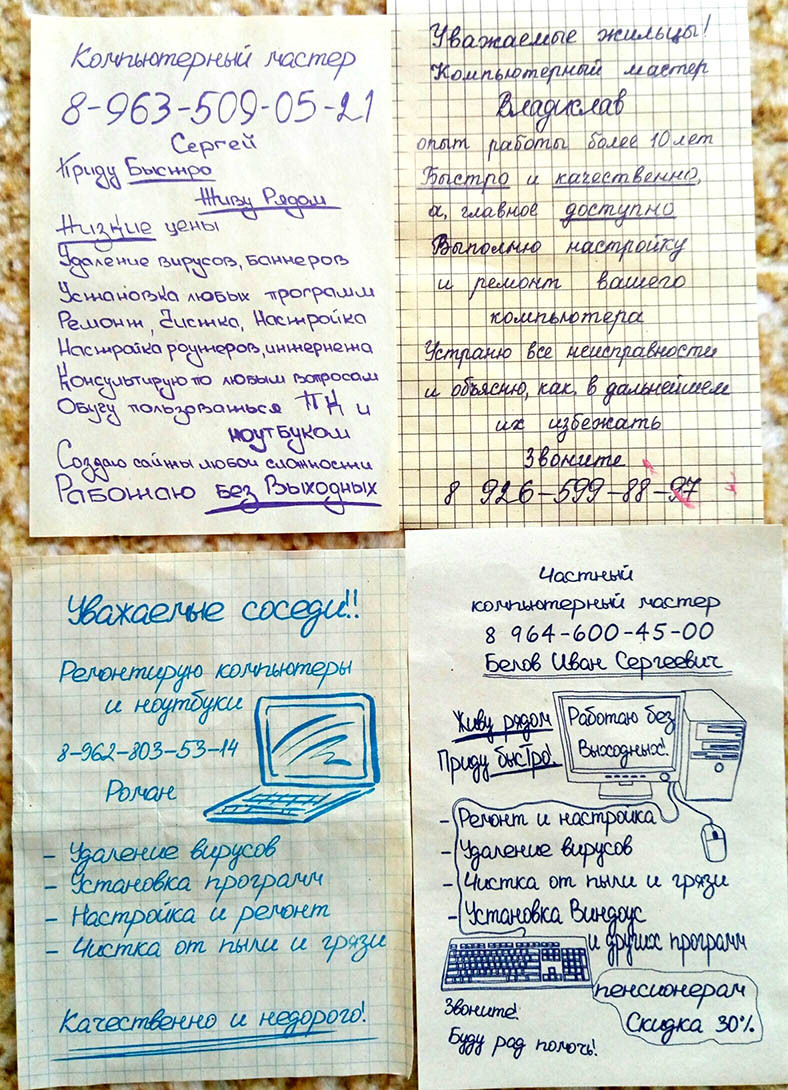 Компьютерный мастер
8-963-509-05-21
Сергей
Приду Быстро
Живу Рядом
Низкие цены
Удаление вирусов, баннеров
Установка любых программ
Ремонт, Чистка, Настройка
Настройка роутеров, интернета
Консультирую по любым вопросам
Обучу пользоваться ПК и
ноутбуком
Создаю сайты любой сложности
Работаю без Выходных
Уважаемые жильцы!
Компьютерный мастер
Владислав
опыт работы более 10 лет
Быстро и качественно,
а, главное доступно
Выполню настройку
и ремонт вашего
компьютера
Устраню все неисправности
и объясню, как, в дальнейшем
их избежать
Звоните
8 926-599-88-97
Уважаемые соседи!!
Ремонтирую компьютеры
и ноутбуки
8-962-803-53-14
Роман
- Удаление вирусов
- Установка программ
- Настройка и ремонт
- Чистка от пыли и грязи
Качественно и недорого!
Частный
компьютерный мастер
8 964-600-45-00
Белов Иван Сергеевич
Живу рядом
Приду быстро!
Работаю без
Выходных!
- Ремонт и настройка
- Удаление вирусов
- Чистка от пыли и грязи
- Установка Виндоус
и других программ
пенсионерам
Скидка 30%
Звоните!
Буду рад помочь!